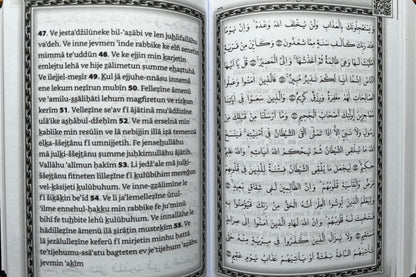 47. Ve jesta'džilūneke bil-'aẕābi ve len juḫlifallāhu
va'deh. Ve inne jevmen 'inde rabbike ke elfi senetin
mimmā te'uddūn 48. Ve ke ejjin min ḳarjetin
emlejtu lehā ve hije ẓālimetun summe eḫaẕtuhā.
Ve ilejjel-meṣīr 49. Ḳul jā ejjuhe-nnāsu innemā
ene lekum neẕīrun mubīn 50. Felleẕīne āmenū
ve 'amiluṣ-ṣāliḥāti lehum magfiretun ve rizḳun
kerīm 51. Velleẕīne se'av fī ājātinā mu'ādžizīne
ulāike aṣḥābul-džeḥīm 52. Ve mā erselnā min
ḳablike min resūlin ve lā nebijjin illā iẕā temennā
elḳa-ššejṭānu fī umnijjetih. Fe jensehullāhu
mā julḳi-ššejṭānu summe juḥkimullāhu ājātih.
Vallāhu 'alīmun ḥakīm 53. Li jedž'ale mā julḳi-
ššejṭānu fitneten lilleẕīne fī ḳulūbihim mereḍun
vel-ḳāsijeti ḳulūbuhum. Ve inne-ẓẓālimīne le
fī šiḳāḳin be'īd 54. Ve li ja'lemelleẕīne ūtul-
'ilme ennehul-ḥaḳḳu min rabbike fe ju'minū
bihī fe tuḫbite lehū ḳulūbuhum. Ve innallāhe le
hādilleẕīne āmenū ilā ṣirāṭin musteḳīm 55. Ve
lā jezālulleẕīne keferū fī mirjetin minhu ḥattā
te'tijehumu-ssā'atu bagteten ev je'tijehum 'aẕābu
jevmin 'aḳīm
وَيَسْتَعْجِلُونَكَ بِالْعَذَابِ وَلَنْ يُخْلِفَ اللّٰهُ وَعْدَهُ وَاِنَّ يَوْمًا
عِنْدَ رَبِّكَ كَاَلْفِ سَنَةٍ مِمَّا تَعُدُّونَ وَكَاَيِّنْ مِنْ قَرْيَةٍ
اَمْلَيْتُ لَهَا وَهِيَ ظَالِمَةٌ ثُمَّ اَخَذْتُهَا وَاِلَيَّ الْمَصِيرُ قُلْ يَا اَيُّهَا
النَّاسُ اِنَّمَا اَنَا لَكُمْ نَذِيرٌ مُبِينٌ فَالَّذِينَ اٰمَنُوا وَعَمِلُوا
الصَّالِحَاتِ لَهُمْ مَغْفِرَةٌ وَرِزْقٌ كَرِيمٌ وَالَّذِينَ سَعَوْا فِي اٰيَاتِنَا
مُعَاجِزِينَ اُولٰئِكَ اَصْحَابُ الْجَحِيمِ وَمَا اَرْسَلْنَا مِنْ قَبْلِكَ
مِنْ رَسُولٍ وَلَا نَبِيٍّ اِلَّا اِذَا تَمَنّٰى اَلْقَى الشَّيْطَانُ فِي اُمْنِيَّتِهِ فَيَنْسَخُ
اللّٰهُ مَا يُلْقِي الشَّيْطَانُ ثُمَّ يُحْكِمُ اللّٰهُ اٰيَاتِهِ وَاللّٰهُ عَلِيمٌ
حَكِيمٌ لِيَجْعَلَ مَا يُلْقِي الشَّيْطَانُ فِتْنَةً لِلَّذِينَ فِي قُلُوبِهِمْ
مَرَضٌ وَالْقَاسِيَةِ قُلُوبُهُمْ وَاِنَّ الظَّالِمِينَ لَفِي شِقَاقٍ بَعِيدٍ
وَلِيَعْلَمَ الَّذِينَ اُوتُوا الْعِلْمَ اَنَّهُ الْحَقُّ مِنْ رَبِّكَ فَيُؤْمِنُوا
بِهِ فَتُخْبِتَ لَهُ قُلُوبُهُمْ وَاِنَّ اللّٰهَ لَهَادِ الَّذِينَ اٰمَنُوا اِلٰى صِرَاطٍ
مُسْتَقِيمٍ وَلَا يَزَالُ الَّذِينَ كَفَرُوا فِي مِرْيَةٍ مِنْهُ حَتّٰى
تَأْتِيَهُمُ السَّاعَةُ بَغْتَةً اَوْ يَأْتِيَهُمْ عَذَابُ يَوْمٍ عَقِيمٍ